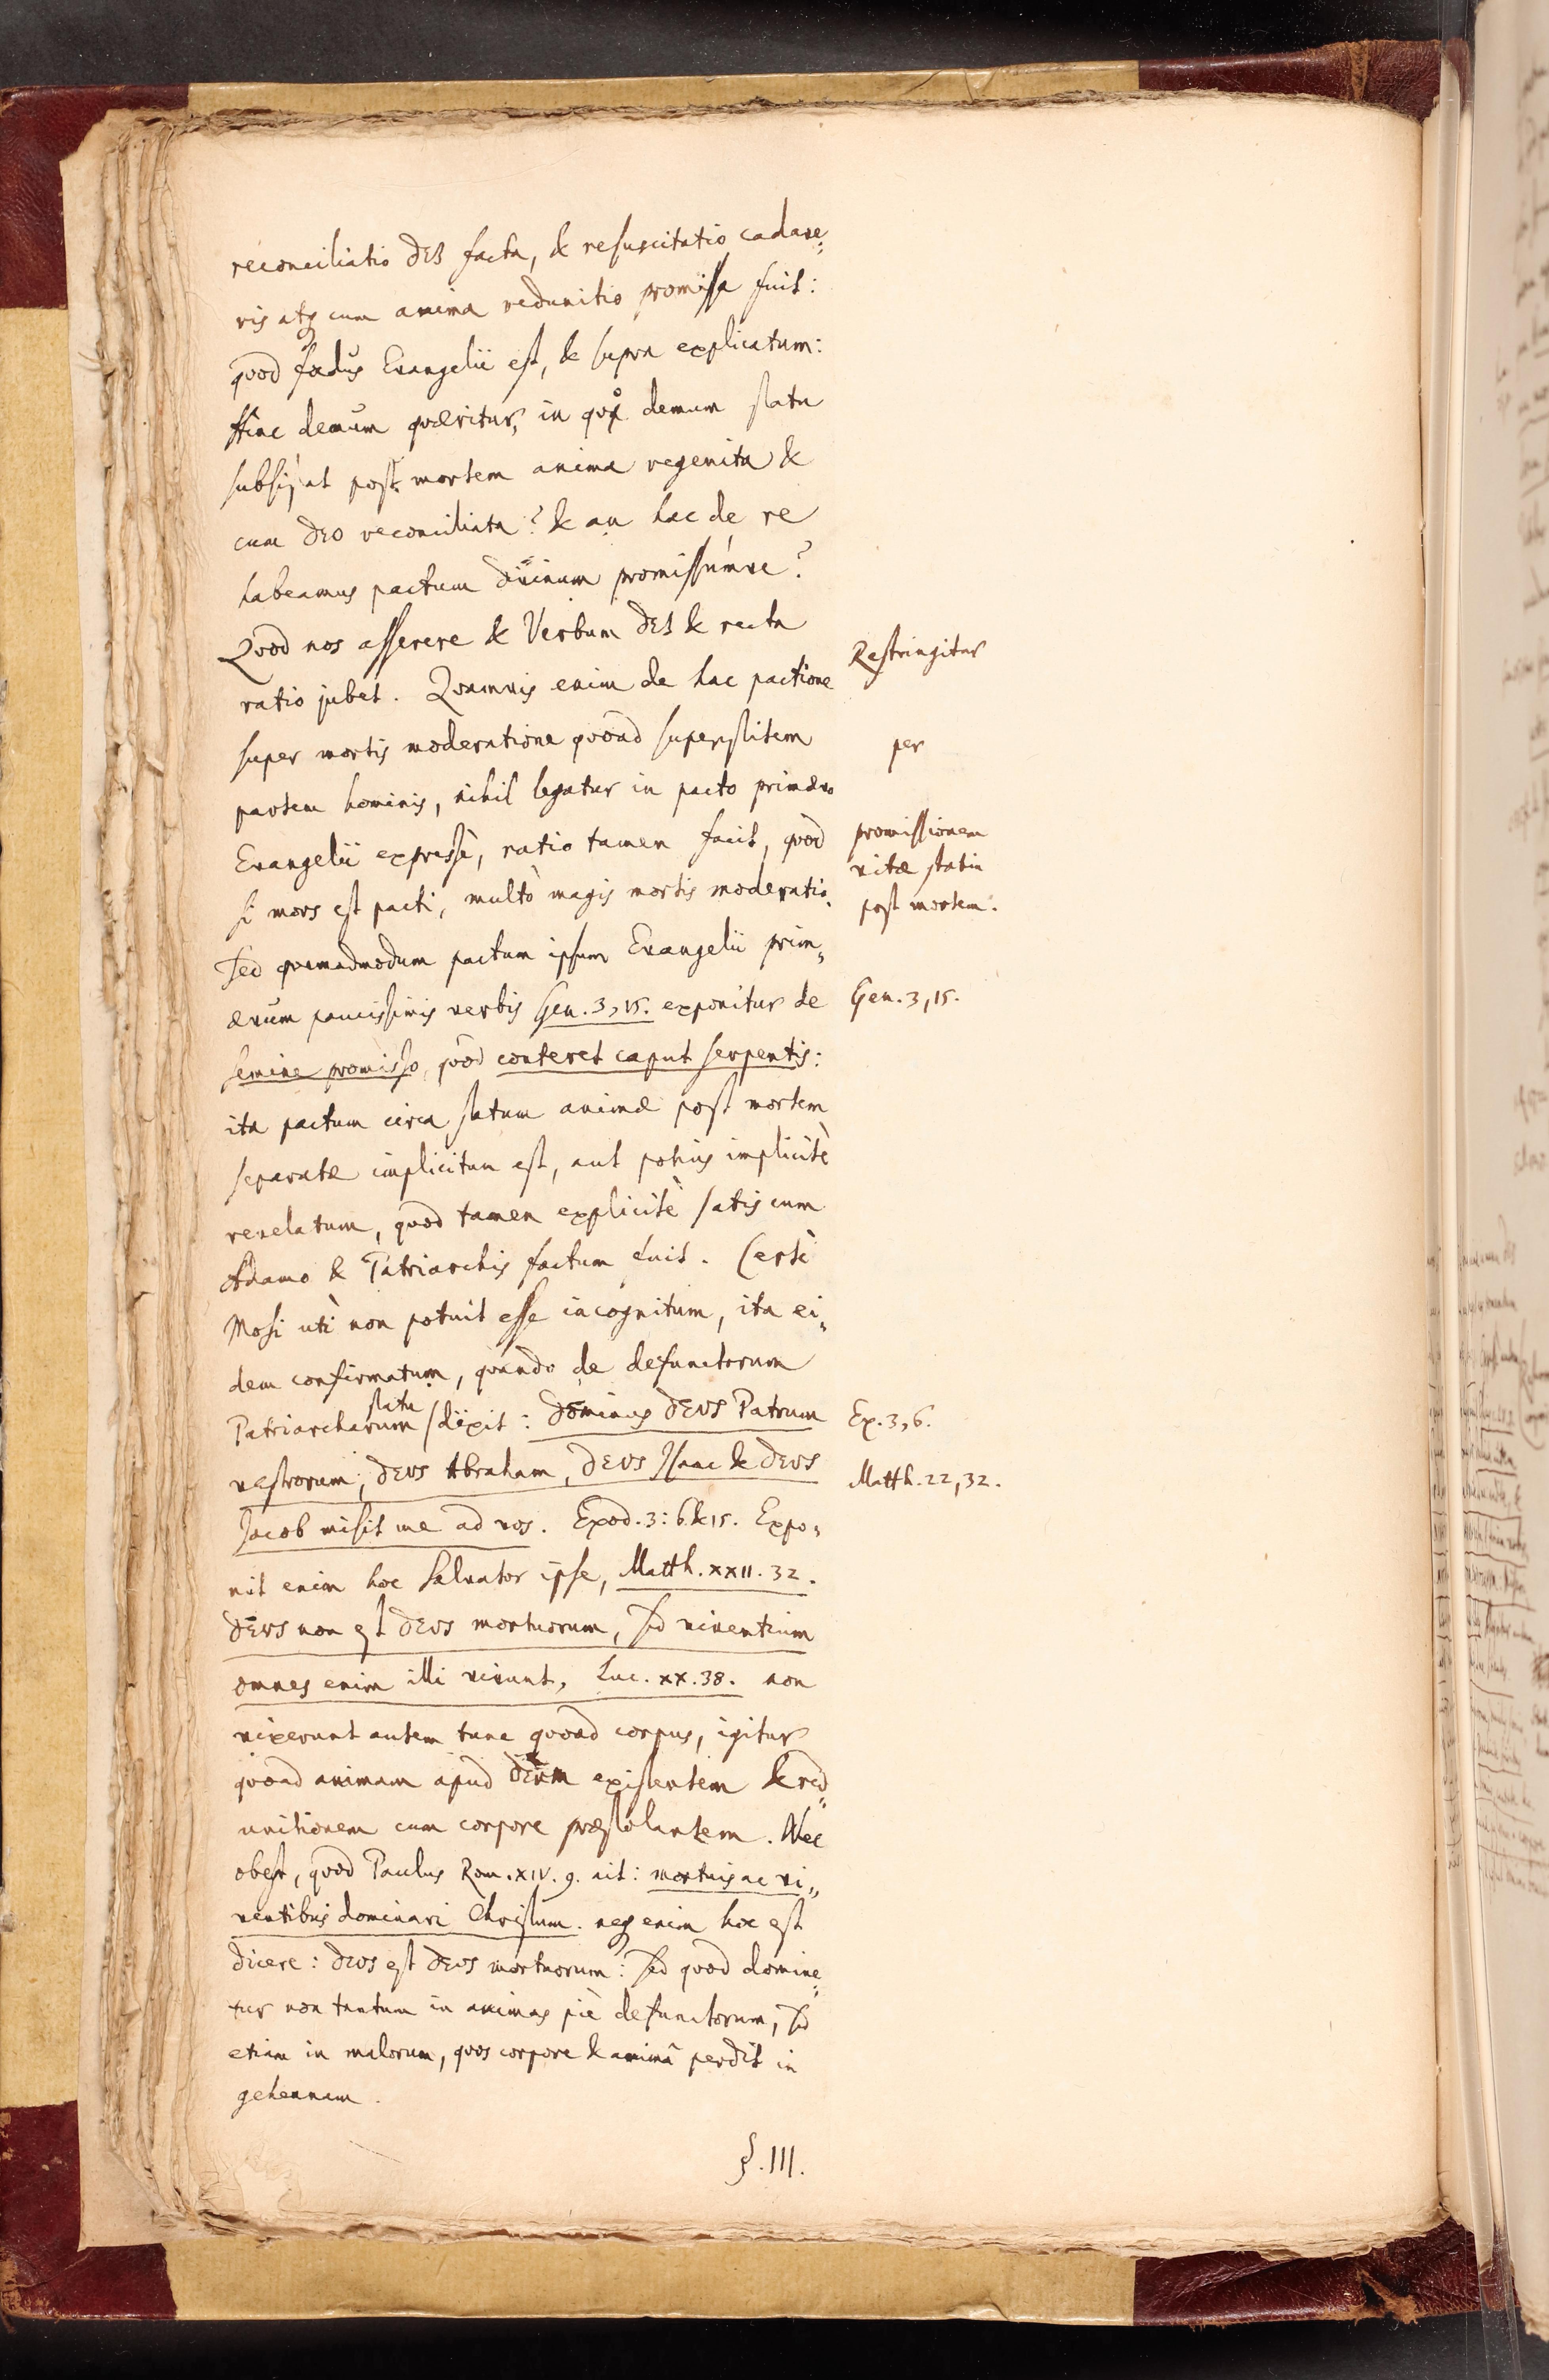 reconciliatio DEI facta, & resuscitatio cadave=
ris atq; cum anima redunitio promissa fuit:
quod fœdus Evangelii est, & supra explicatum:
Hinc demum quæritur, in quo demum statu
subsistat post mortem anima regenita &
cum DEO reconciliata? & an hac de re
habeamus pactum divinum promissumve?
Quod nos asserere & Verbum DEI & recta
ratio jubet. Quamvis enim de hac pactione
super mortis moderatione quoad superstitem
partem hominis, nihil legatur in pacto primævo
Evangelii expressè, ratio tamen facit, quod
si mors est pacti, multò magis mortis moderatio.
Sed quemadmodum pactum ipsum Evangelii prim=
ævum paucissimis verbis Gen. 3, 15. exponitur de
semine promisso, quod conteret caput serpentis:
ita pactum circa statum animæ post mortem
separatæ implicitum est, aut potius implicitè
revelatum, quod tamen explicitè satis cum
Adamo & Patriarchis factum fuit. Certè
Mosi uti non potuit esse incognitum, ita ei=
dem confirmatum, quando de defunctorum
Patriarcharum statu dixit: Dominus DEUS Patrum
vestrorum, DEUS Abraham, DEUS Isaac & DEUS
Jacob misit me ad vos. Exod. 3: 6. & 15. Expo=
nit enim hoc Salvator ipse, Matth. XXII. 32.
DEUS non est DEUS mortuorum, sed viventium
omnes enim illi vivunt, Luc. XX. 38. non
vixerunt autem tunc quoad corpus, igitur
quoad animam apud DEUM existentem & red=
unitionem cum corpore præstolantem. Nec
obest, quod Paulus Rom. XIV. 9. ait: mortuis ac vi=
ventibus dominari Christum. neq; enim hoc est
dicere: DEUS est DEUS mortuorum: sed quod domine=
tur non tantum in animas piè defunctorum, sed
etiam in malorum, quos corpore & animâ perdit in
gehennam.
§. III.
Restringitur
per
promissionem
vitæ statim
post mortem.
Gen. 3, 15.
Ex. 3, 6.
Matth. 22, 32.